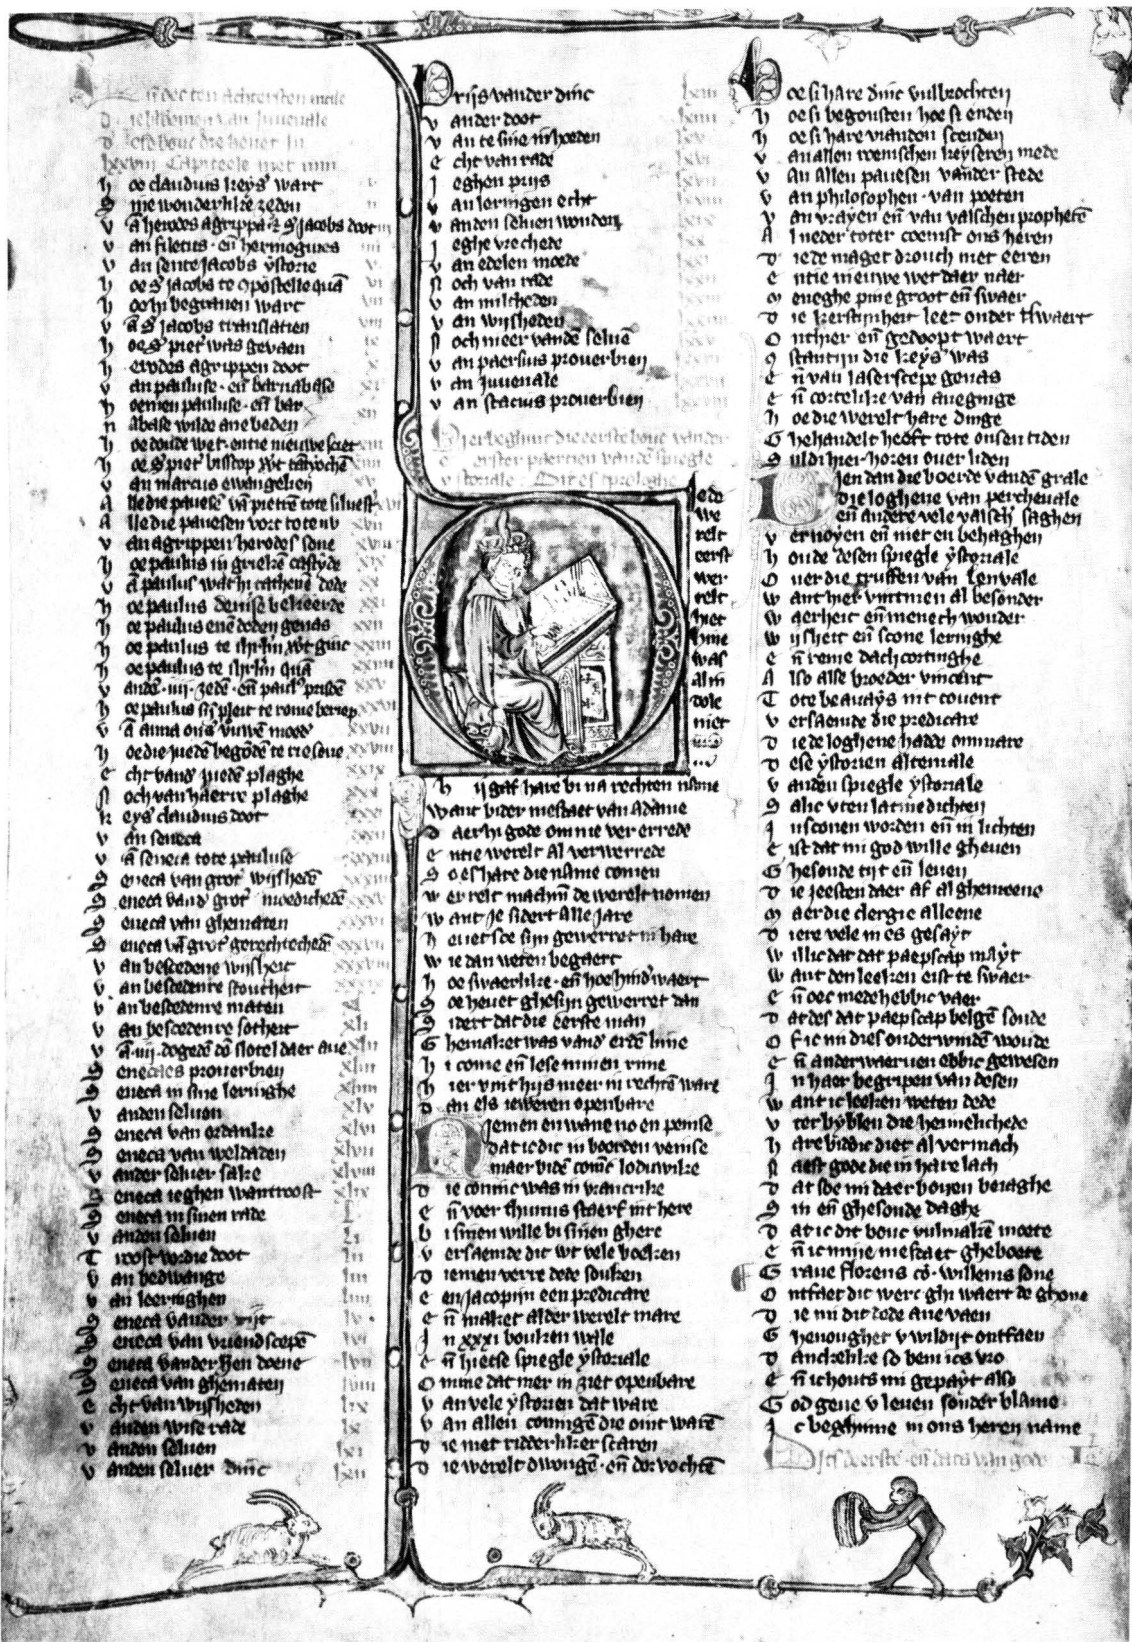 En̄ oec ten achtersten male
D ie bloemen van Juvenale
D
lxxviii Capiteele met
H oe claudius keys' wart
S ine wonderlike zeden
V ā herodes agrippa s' Jacobs doot
V an filetus · en̄ hermogines
V an sente Jacobs ystorie
H oe s' Jacobs te compostelle quā
H oe hi begraven wart
V ā s' Jacobs translatien
H oe s' piet' was gevaen
H erodes agrippen doot
V an pauluse · en̄ barnabase
H oe men pauluse · en̄ bar
N abase wilde anebeden
H oe doude wet · entie nieuwe sciet
H oe s' piet' bisscop
V an marcus ewangelien
A lle die pavese vā pietre tote silvest'
A lle die pavesen vort tote nv
V an agrippen herodes' sone
H oe paulus in grieke castyde
V ā paulus wat hi tathene dede
H oe paulus denise bekeerde
H oe paulus enē doden genas
H oe paulus te
H oe paulus te quā
V andē · iiij · zedē · en̄ paul'
H oe paulus sij pleit te rome beriep
V ā anna ons' vrouwē moed'
H oe die juedē begōdē te riesene
E cht vand' juedē plaghe
N och van haerre plaghe
K eys' claudius doot
V an seneca
V ā seneca tote pauluse
S eneca van grot' wijshedē
S eneca vand' grot' moedichedē
S eneca van ghematen
S eneca vā grot' gerechtechedē
V an bescedene wijsheit
V an bescedenre stoutheit
V an bescedenre maten
V an bescedenre sotheit
V ā · iiij · dogedē
S enecaes proverbien
S eneca in sine leringhe
V anden selven
S eneca van ordanke
S eneca van weldaden
V ander selver sake
S eneca ieghen wantroost
S eneca in sinen rade
V anden selven
T roost vor die doot
V an bedwange
V an leeringhen
S eneca vander
S eneca van vriendscepē
S eneca vander doene
S eneca van ghematen
E cht van wijsheden
V anden wise rade
V anden selven
V anden selver dinc
Prijs vander dinc lxiii
V ander doot
V an te sine in hoeden
E cht van rade
J eghen prijs
V an leringen echt
V anden selven wonden
J eghe vrechede
V an edelen moede
N och van rade
V an milcheden
V an wijsheden
N och meer vandē selvē
V an paersius proverbien
V an juvenale
V an stacius proverbien
Hier beghint die eerste bouc vander
eerster paertien vandē spiegle
ystoriale · Dit es tprologhe
Iede
we
relt
eerst
wer
relt
hiet
hine
was
al in
dole
niet
H ij gaf hare bi na rechten name
Want bider mesdaet van Adame
D aer hi gode omme ver errede
E ntie werelt al verwerrede
S o es hare die name comen
W erelt machmē de werelt nomen
W ant je sidert alle jare
H evet soe sijn gewerret in hare
W ie dan weten begaert
H oe swaerlike · en̄ hoe hind'waert
S oe hevet ghesijn gewerret dan
S idert dat die eerste man
G hemaket was vand' erdē lime
H i come en̄ lese minen rime
H ier vint hijs meer in rechtē ware
D an els ieweren openbare
Niemen en wane no en peinse
Dat ic dit in boorden veinse
Maer bidē coninc lodewike
D ie coninc was in vrancrike
E n̄ voer thunus staerf int here
B i sinen wille bi sinen ghere
V ersaemde dit wt vele boeken
D iemen verre dede souken
E en jacopijn een predicare
E n̄ maket alder werelt mare
I n xxxi bouken wale
E n̄ hietse spiegle ystoriale
O mme dat mer in ziet openbare
V an vele ystorien dat ware
V an allen coningē die oint warē
D ie met ridderliker scaren
D ie werelt dwongē · en̄ dor vochtē
Hoe si hare dinc vulbrochten
H oe si begonsten hoe si enden
H oe si hare vianden scenden
V an allen roemschen keyseren mede
V an allen pavesen vander stede
V an philosophen · van poeten
V an vrayen en̄ van valschen prophetē
A l neder toter coemst ons heren
D ie de maget drouch met eeren
E ntie nieuwe wet daer naer
M eneghe pine groot en̄ swaer
D ie kerstinheit leet onder
O nthier en̄ gedoopt waert
stantijn die keys' was
E n̄ van laserscepe genas
E n̄ cortelike van aueghinge
H oe die werelt hare dinge
G hehandelt heeft tote onsen tiden
S uldi hier horen over liden
Dien dan die boerde vandē grale
Die loghene van perchevale
En̄ andere vele valsch' saghen
V ernoyen en̄ niet en behaghen
H oude desen spiegle ystoriale
O ver die truffen van lenvale
W ant hier vintmen al besonder
W aerheit en̄ menech wonder
W ijsheit en̄ scone leringhe
E n̄ reine dachcortinghe
A lso alse broeder vincent
T ote beauays int covent
V ersaemde die predicare
D ie de loghene hadde ommare
D ese ystorien altemale
V anden spiegle ystoriale
S al ic vten latine dichten
I n sconen worden en̄ in lichten
E ist dat mi god wille gheven
G hesonde tijt en̄ leven
D ie jeesten daer af al ghemeene
M aer die clergie alleene
D iere vele in es gesayt
W illic dat dat paepscap mayt
W ant den leeken eist te swaer
E n̄ oec mede hebbic vaer
D at des dat paepscap belgē soude
O f ic mi dies onderwindē woude
E n̄ anderwaerven ebbic gewesen
I n haer begripen van desen
W ant ic leeken weten dede
V ter byblen die heimelichede
H are biddic diet al vermach
N aest gode die in hare lach
D at soe mi daer boven beiaghe
S in en̄ ghesonde daghe
D at ic dit bouc vulmakē moete
E n̄ ic mine mesdaet gheboete
G rave florens cō · willems sone
O ntfaet dit werc ghi waert de ghone
D ie mi dit dede ane vaen
G henoughet v wildijt ontfaen
D anckelike so ben ics vro
E n̄ ic houts mi gepayt also
G od geve v leven sonder blame
I c beghinne in ons heren name
Dits deerste · en̄ dats van gode